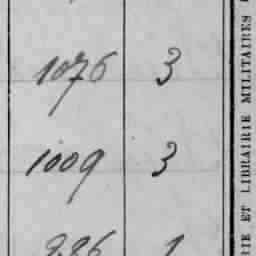 1076 3
1009 3
ET LIBRAIRIE MILITAIRES